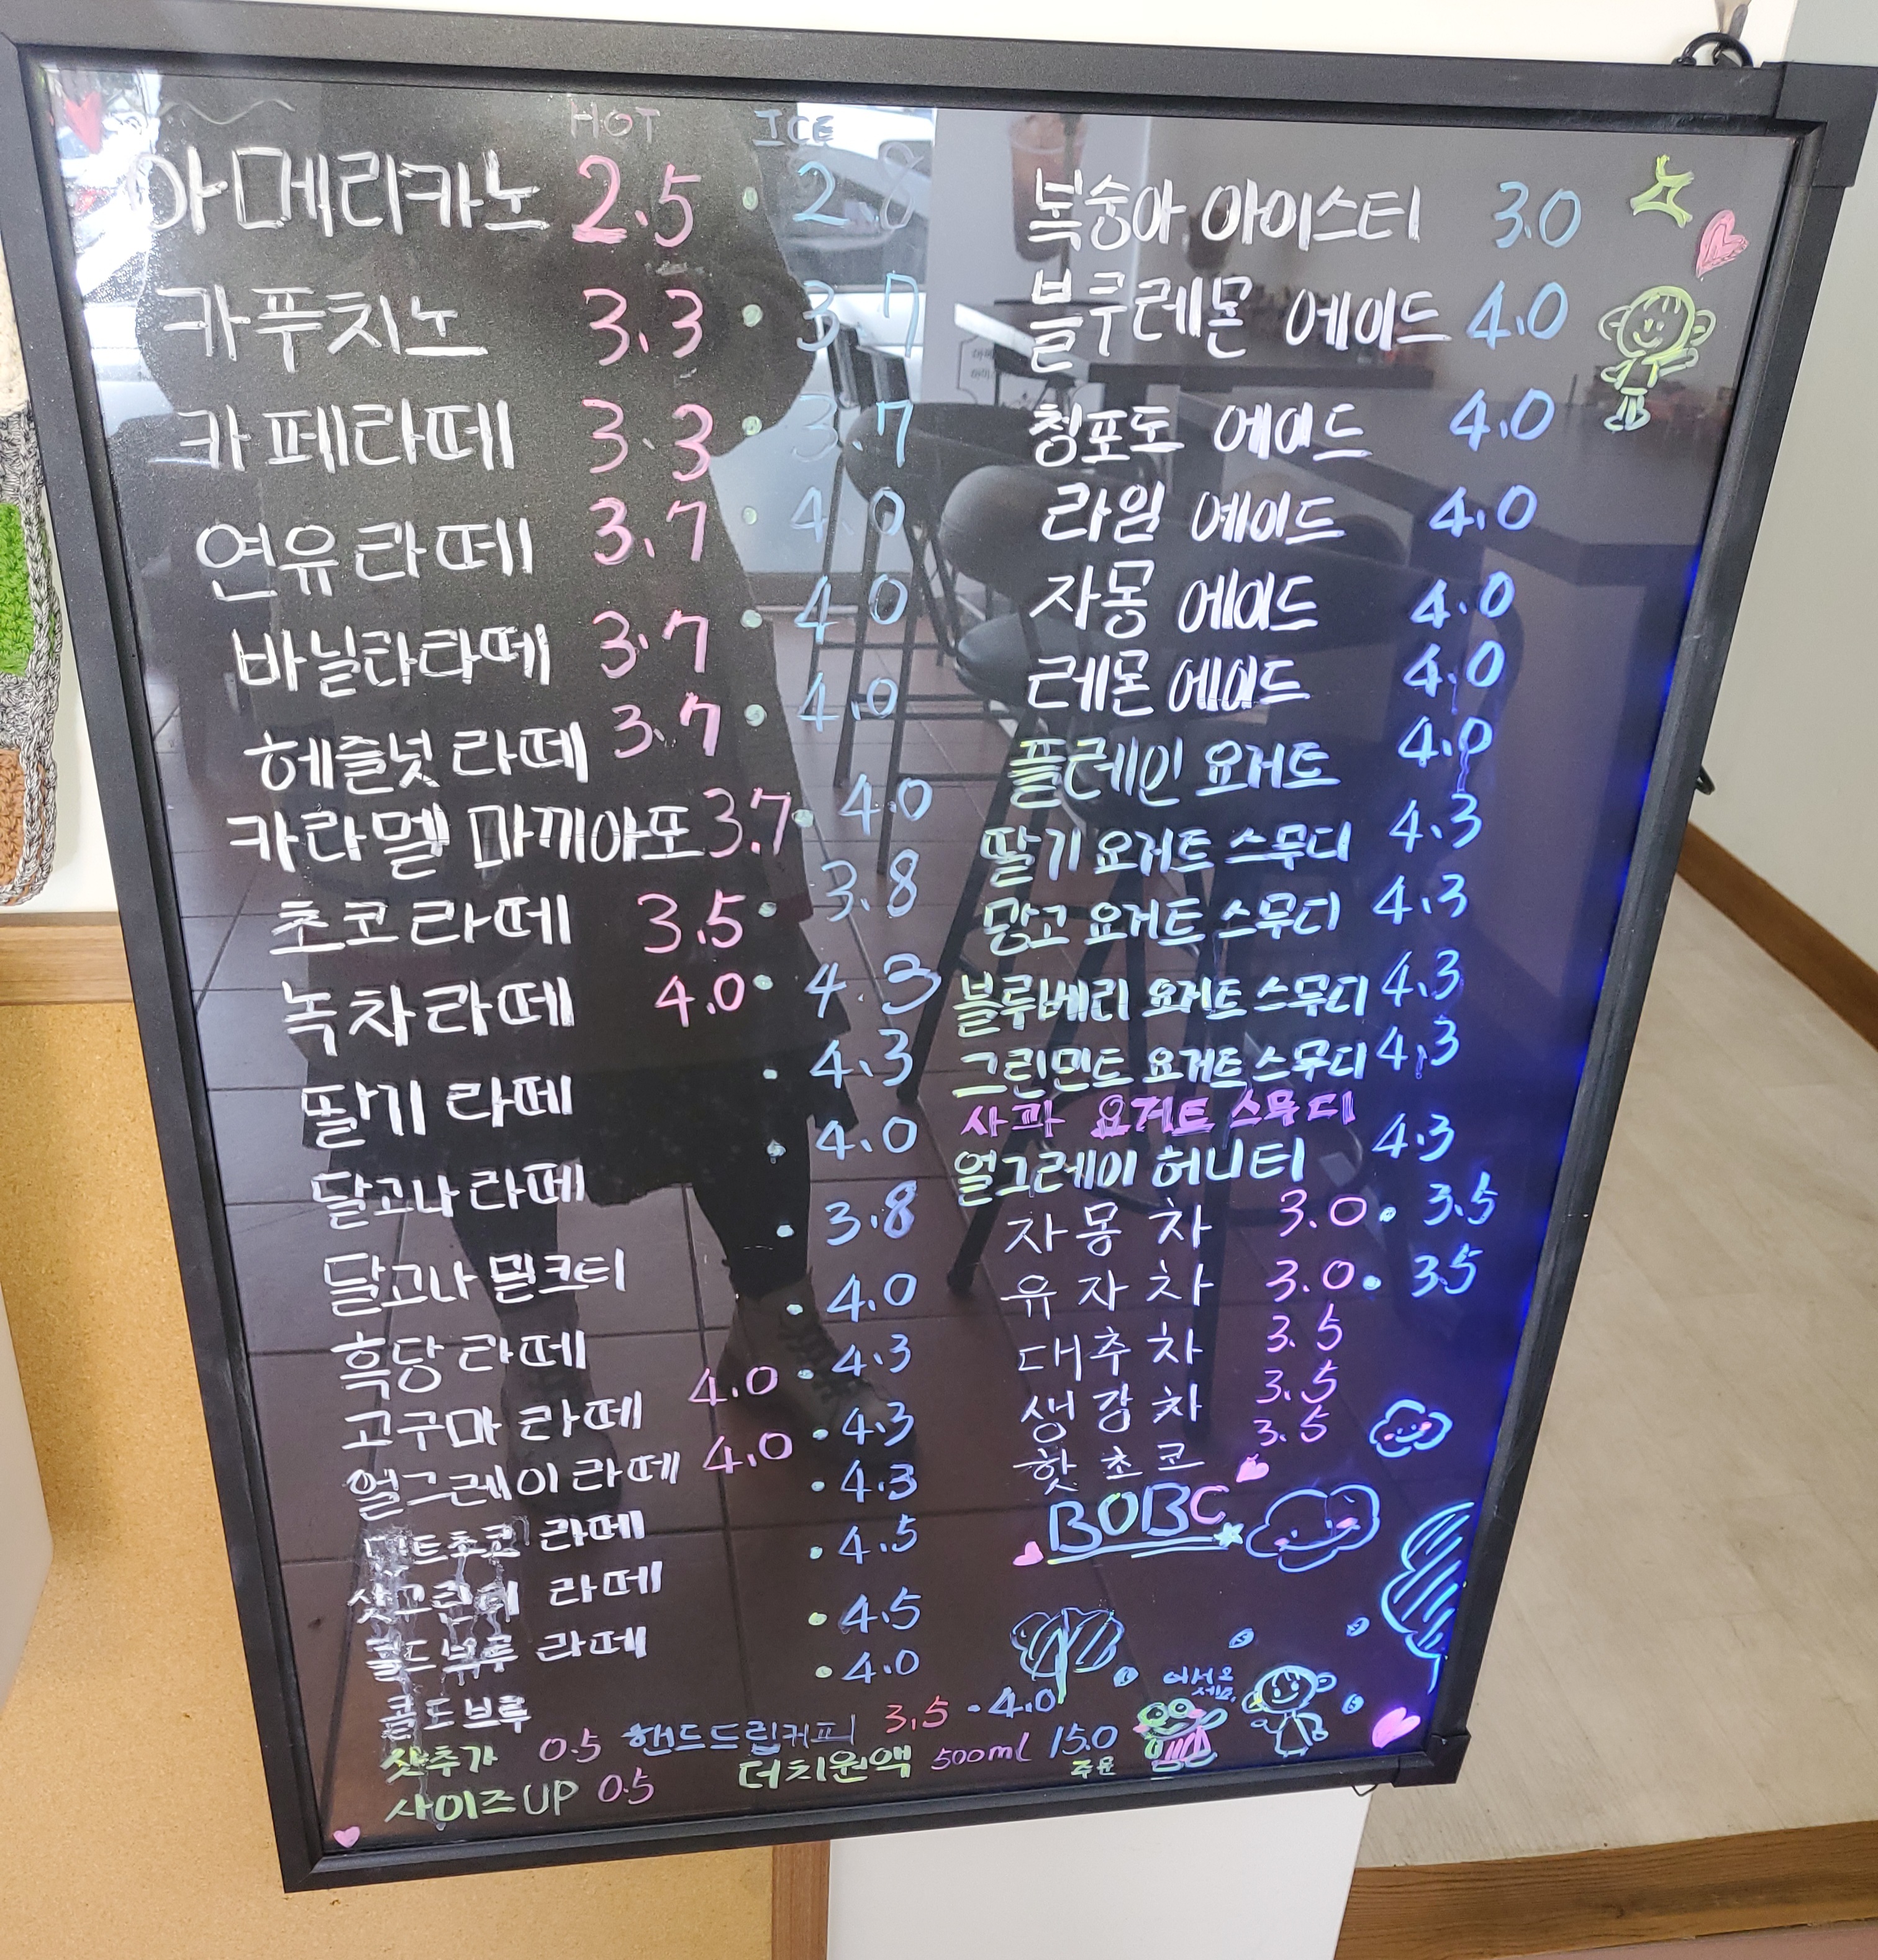 HOT ICE
아메리카노 2.5 · 2.8
카푸치노 3.3 · 3.7
카페라떼 3.3 · 3.7
연유라떼 3.7 · 4.0
바닐라라떼 3.7 · 4.0
헤즐넛라떼 3.7 · 4.0
카라멜 마끼아또 3.7 · 4.0
초코라떼 3.5 · 3.8
녹차라떼 4.0 · 4.3
딸기 라떼 · 4.3
달고나라떼 · 4.0
달고나 밀크티 · 3.8
흑당라떼 · 4.0
고구마 라떼 4.0 · 4.3
얼그레이라떼 4.0 · 4.3
민트초코 라떼 · 4.3
샷그린티 라떼 · 4.5
콜드브루 라떼 · 4.5
콜드브루 · 4.0
샷추가 0.5 핸드드립커피 3.5 · 4.0
사이즈UP 0.5 더치원액 500ml 15.0
복숭아 아이스티 3.0
블루레몬 에이드 4.0
청포도 에이드 4.0
라임 에이드 4.0
자몽 에이드 4.0
레몬 에이드 4.0
플레인 요거트 4.0
딸기 요거트 스무디 4.3
망고 요거트 스무디 4.3
블루베리 요거트 스무디 4.3
그린민트 요거트 스무디 4.3
사과 요거트 스무디
얼그레이 허니티 4.3
자몽차 3.0 · 3.5
유자차 3.0 · 3.5
대추차 3.5
생강차 3.5
핫초코 3.5
BOBC
어서오
세요